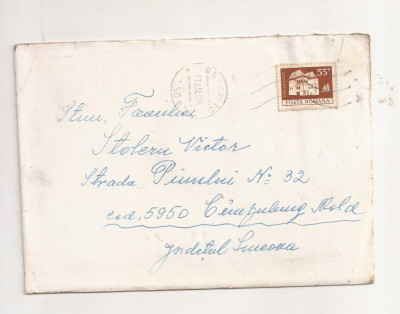 55 B
POSTA ROMANA
Stim. Familiei
Stoleru Victor
Strada Pinului No 32
cod, 5950 Cîmpulung Mold
Județul Suceava